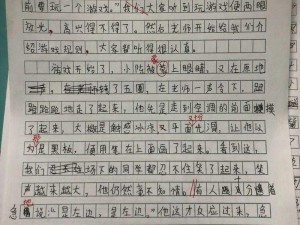 前要玩一个游戏。"我们大家听到玩游戏便两眼
放光，高兴得不得了。然后老师开始给我们介
绍游戏规则。大家都听得很认真。
游戏开始了，小陈被蒙上眼睛，又在原地
了五圈，在老师一声令下，
地走了起来。他先是走到空调的前面摸
了起来，大概是触感冰冷又平面光滑，让他认
为是黑板，便用笔在上面画了起来。看到这，
我们在场下的同学都忍不住笑了起来，笑
声越来越大，他仍然毫不知情。有人十分着
急地说"是左边，是左边"他这才反应过来。